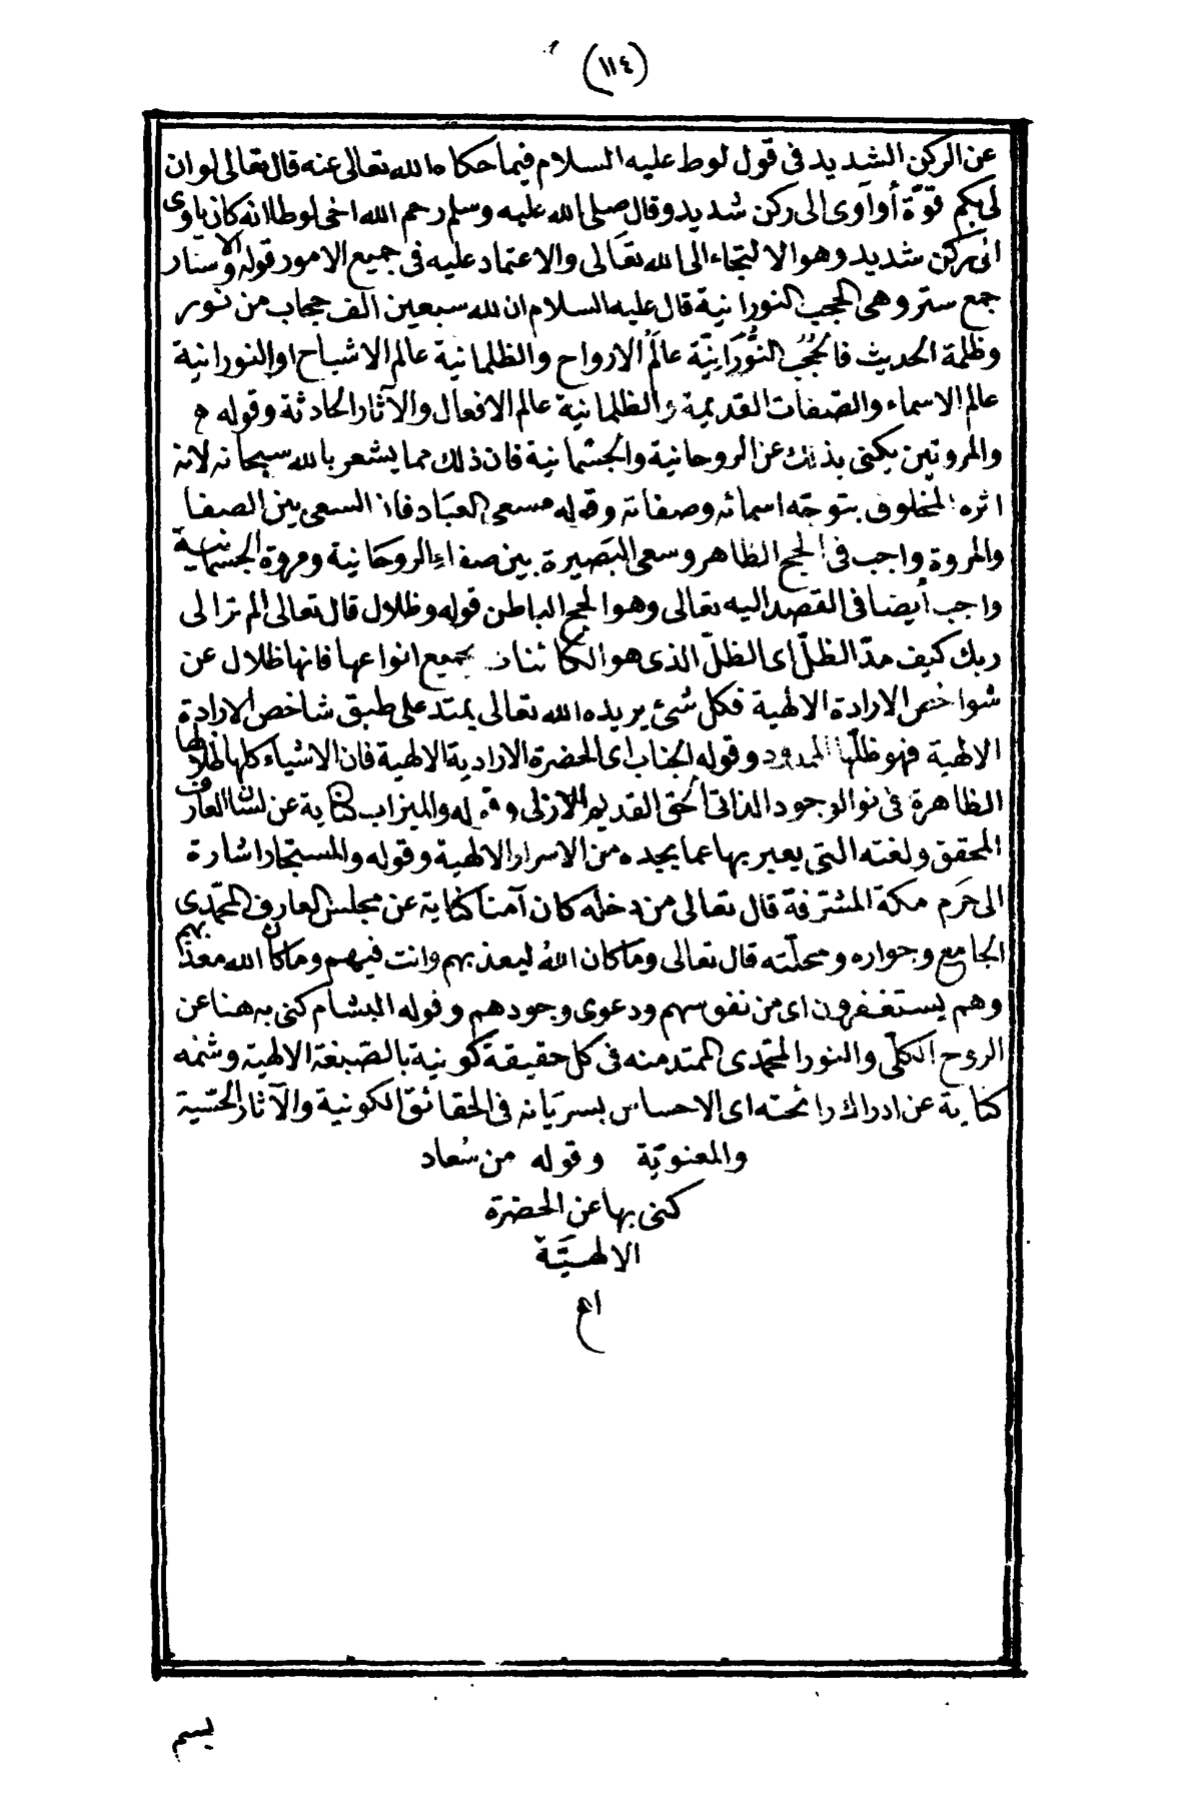 (١١٤)
عن الركن الشديد في قول لوط عليه السلام فيما حكاه الله تعالى عنه قال تعالى لو ان
لي بكم قوّة أو آوى الى ركن شديد وقال صلى الله عليه وسلم رحم الله اخى لوطا انه كان ياوى
الى ركن شديد وهو الالتجاء الى الله تعالى والاعتماد عليه فى جميع الامور قوله والاستار
جمع ستر وهى الحجب النورانية قال عليه السلام ان لله سبعين الف حجاب من نور
وظلمة الحديث فالحُجُبُ النُّورَانِيّة عالَمُ الارواح والظلمانية عالم الاشباح او النورانية
عالم الاسماء والصفات القديمة والظلمانية عالم الافعال والآثار الحادثة وقوله
والمروتين يكنى بذلك عن الروحانية والجسمانية فان ذلك مما يشعر بالله سبحانه لانه
اثره المخلوق بتوجّه اسمائه وصفاته وقوله مسعى العباد فان السعى بين الصفا
والمروة واجب فى الحج الظاهر وسعى البَصيرة بين صفاء الروحانية ومروة الجسمانية
واجب أيضا فى القصد اليه تعالى وهو الحج الباطن قوله وظلال قال تعالى الم تر الى
ربك كيف مدّ الظلّ اى الظلّ الذى هو الكائنات بجميع انواعها فانها ظلال عن
شواخص الارادة الالهية فكل شئ يريده الله تعالى يمتد على طبق شاخص الارادة
الالهية فهو ظلّها الممدود وقوله الجناب اى الحضرة الارادية الالهية فان الاشياء كلها ظلالها
الظاهرة فى نور الوجود الذاتى الحق القديم الازلى وقوله والميزاب كناية عن لسان العارف
المحقق ولغته التى يعبر بها عما يجده من الاسرار الالهية وقوله والمستجار اشارة
الى حَرَم مكة المشرفة قال تعالى من دخله كان آمنا كناية عن مجلس العارف المحمّدى
الجامع وجواره ومحلّته قال تعالى وما كان اللهُ ليعذبهم وانت فيهم وما كان الله معذبهم
وهم يستغفرون اى من نفوسهم ودعوى وجودهم وقوله البشام كنى به هنا عن
الروح الكلّى والنور المحمّدى الممتد منه فى كل حقيقة كونية بالصبغة الالهية وشمه
كناية عن ادراك رائحته اى الاحساس بسريانه فى الحقائق الكونية والآثار الحسّية
والمعنويّة وقوله من سُعاد
كنى بها عن الحضرة
الالهيَّة
اه
بسم